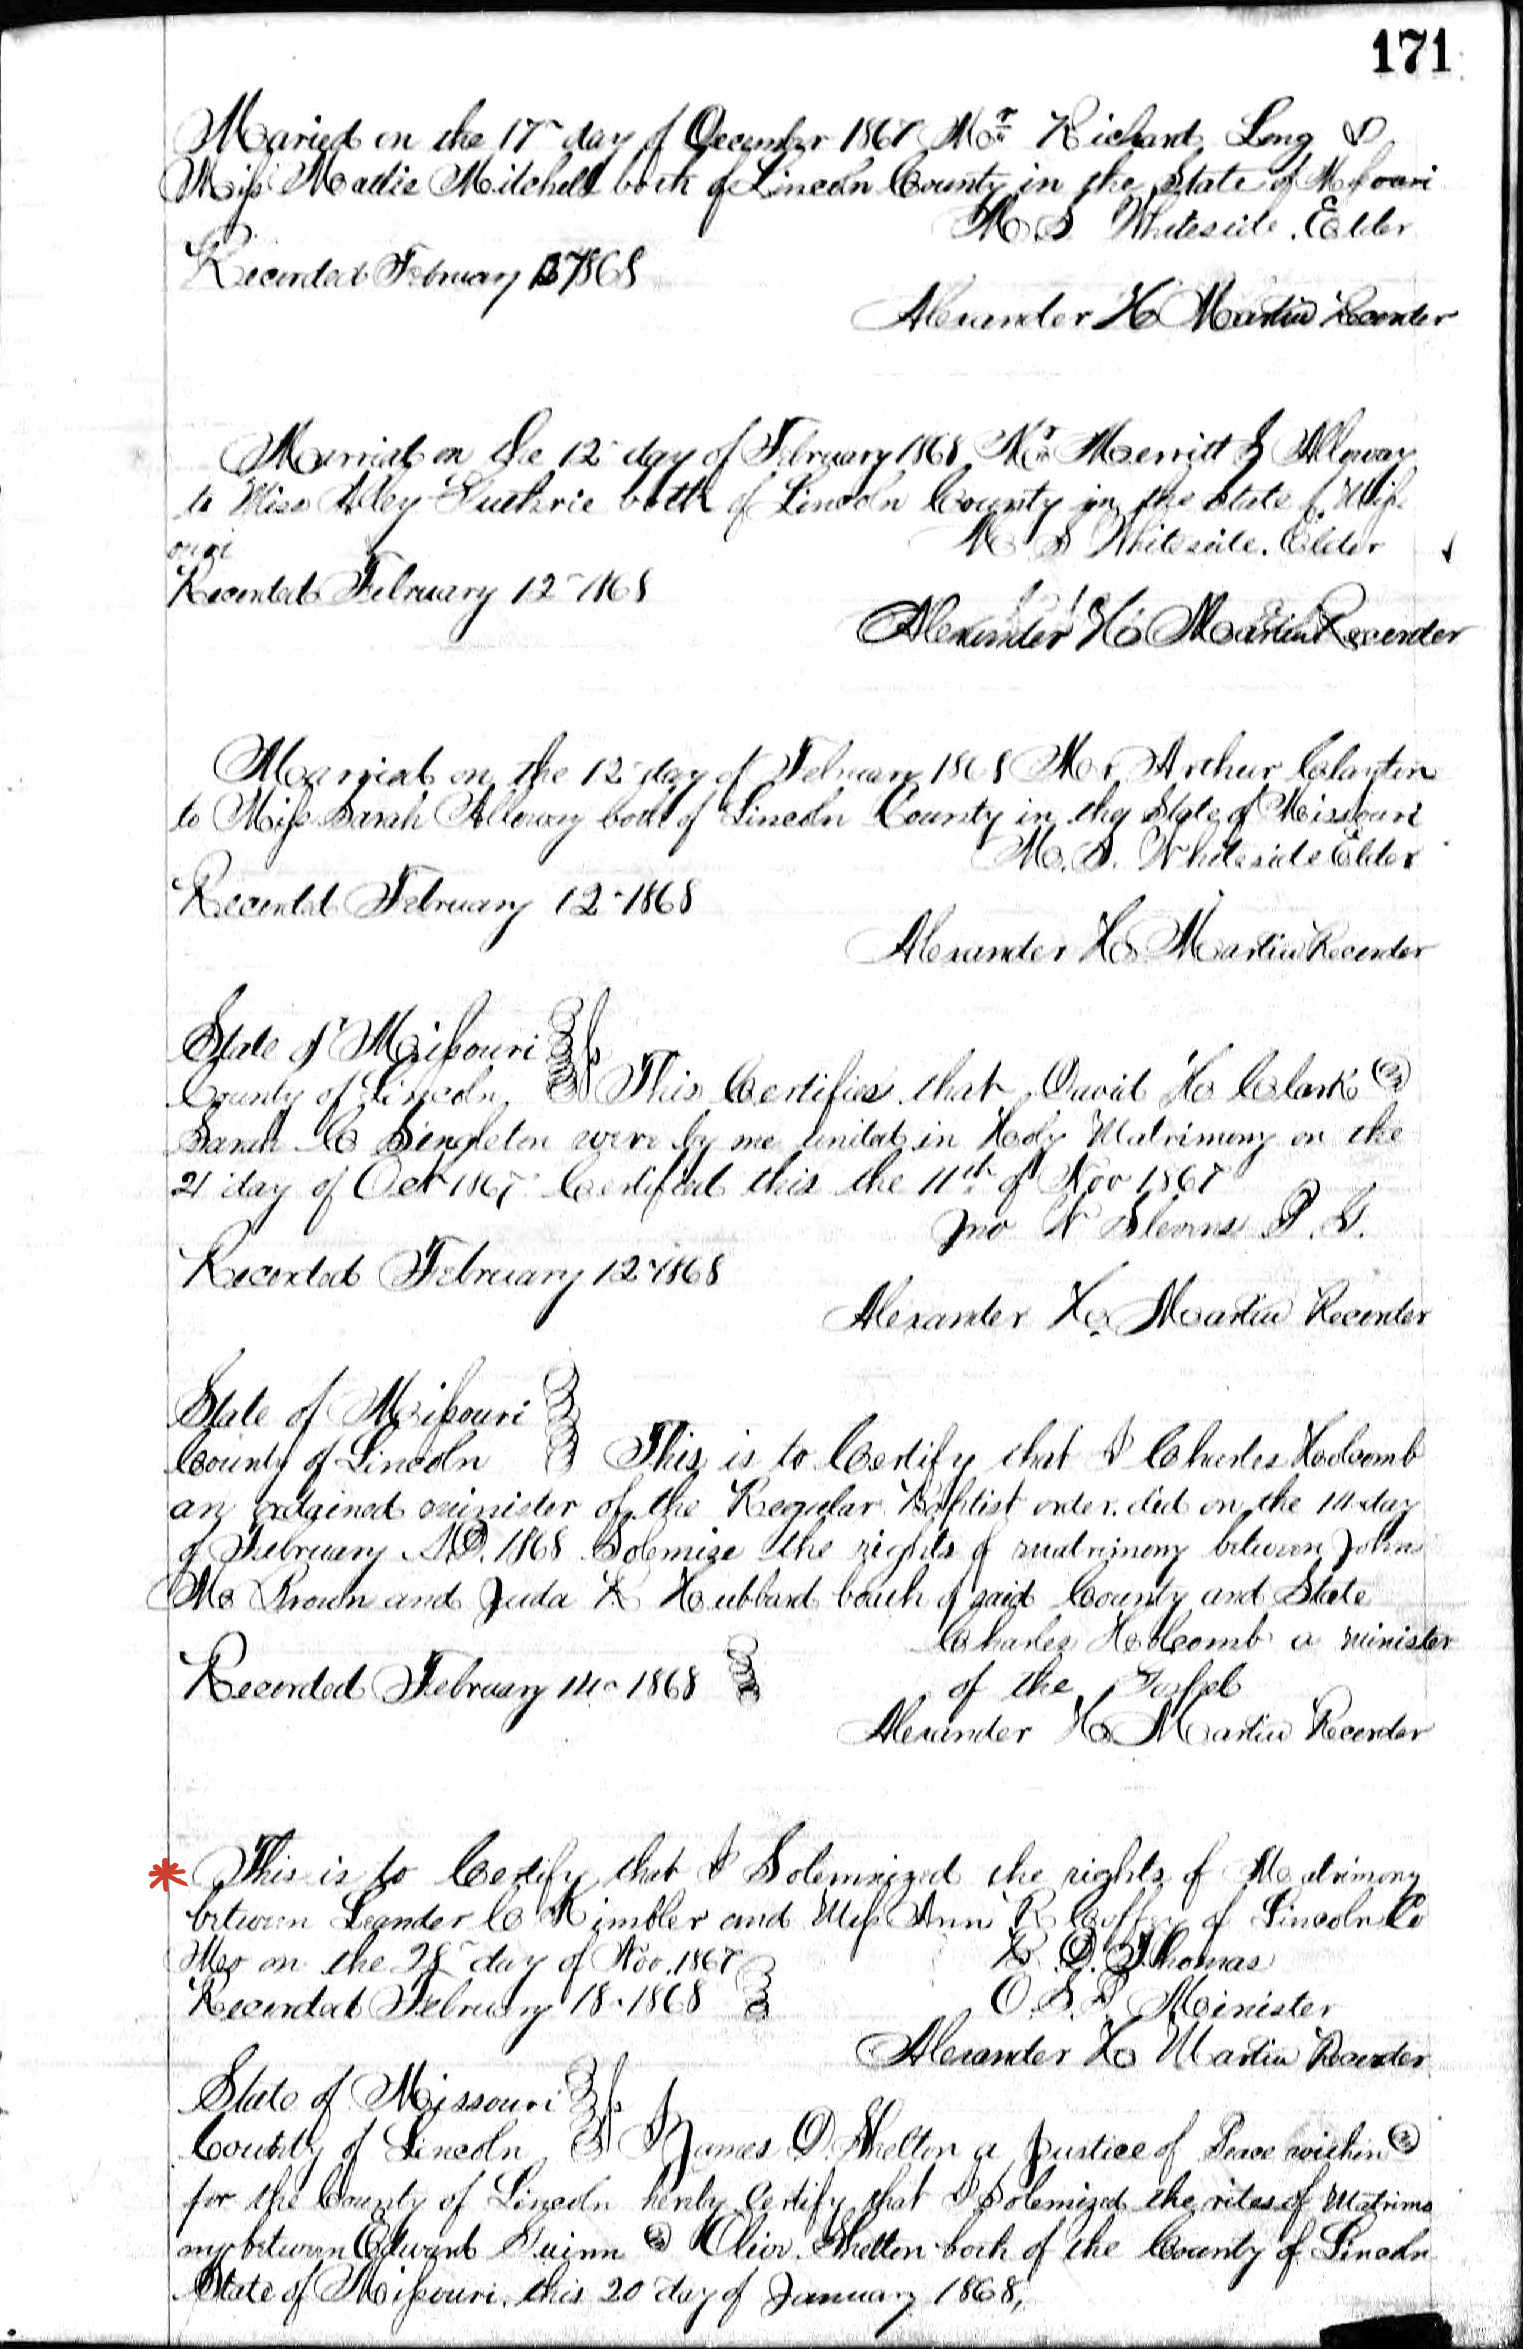 171
Maried on the 17" day of December 1867 Mr Richard Long &
Miss Mattie Mitchell both of Lincoln County in the State of Missouri
M. S. Whiteside. Elder
Recorded February 1868
Alexander H Martin Recorder
Married on the 12" day of February 1868 Mr Merritt Alloway
to Miss Alley Guthrie both of Lincoln County in the State of Miss
ouri
M S Whiteside. Elder
Recorded February 12" 1868
Alexander H Martin Recorder
Married on the 12" day of February 1868 Mr Arthur Clanton
to Miss Sarah Alloway both of Lincoln County in the State of Missouri
M. S. Whiteside Elder
Recorded February 12" 1868
Alexander H Martin Recorder
State of Missouri
County of Lincoln This Certifies that David H Clark &
Sarah C Singleton were by me united in Holy Matrimony on the
21 day of Oct 1867 Certified this the 11th of Nov 1867
Jno W Stevens
Recorded February 12" 1868
Alexander H. Martin Recorder
State of Missouri
County of Lincoln This is to Certify that I Charles Holcomb
an ordained minister of the Regular Baptist order. did on the 14 day
of February A.D. 1868 Solemise the rights of matrimony between John
M Brown and Juda Hubbard bouth of said County and State
Charles Holcomb a minister
Recorded February 14" 1868 of the Gospel
Alexander H Martin Recorder
* This is to Certify that I Solemnized the rights of Matrimony
between Leander C Kimbler and Miss Ann R Coffey of Lincoln Co
Mo on the 28" day of Nov. 1867 D. Thomas
Recorded February 18" 1868 O. S. B. Minister
Alexander H Martin Recorder
State of Missouri
County of Lincoln I James D. Shelton a Justice of Peace within &
for the County of Lincoln hereby Certify that I Solemized the rites of Matrimo
ny between Edward Guinn & Shelton both of the County of Lincoln
State of Missouri. this 20 day of January 1868,